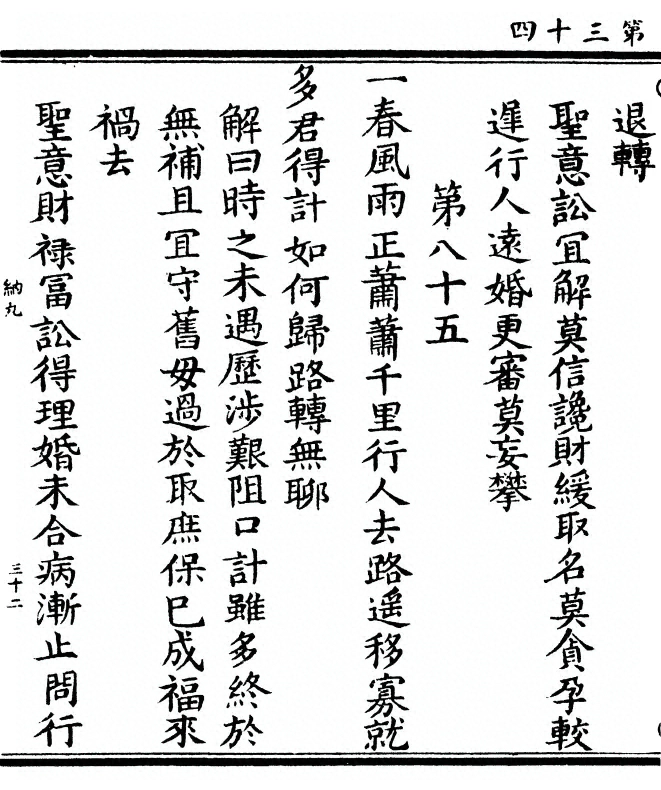 第三十四
退轉
聖意訟冝解莫信讒財緩取名莫貪孕較
遅行人遠婚更審莫妄攀
第八十五
一春風雨正蕭蕭千里行人去路遥移寡就
多君得計如何歸路轉無聊
解曰時之未遇歷涉艱阻口計雖多終於
無補且冝守舊毋過於取庶保巳成福來
禍去
聖意財禄冨訟得理婚未合病漸止問行
納九
三十二